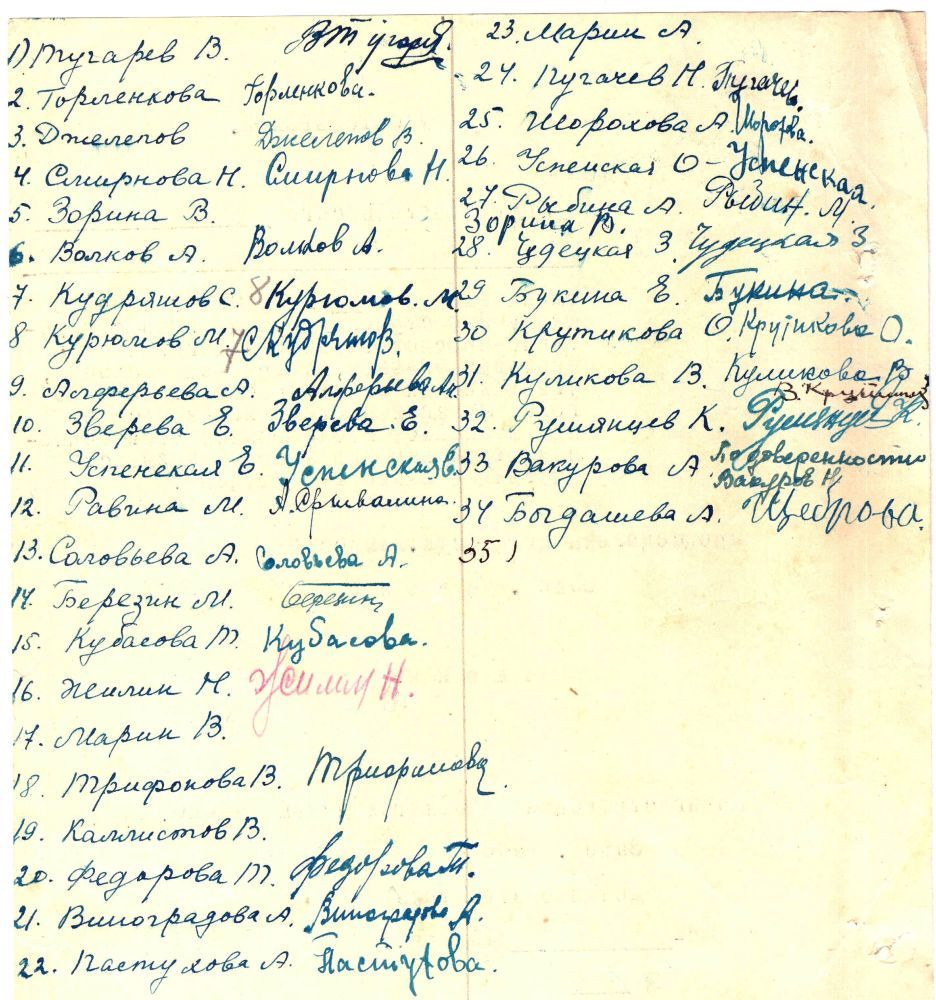 1) Тугарев В. ВТугарев
2. Горленкова Горленкова.
3. Джелепов Джелепов В.
4. Смирнова Н. Смирнова Н.
5. Зорина В. Зорина В.
6. Волков А. Волков А.
7. Кудряшов С. 8 Курюмов. М.
8 Курюмов М. 7 СКудряшов.
9. Алферьева А. Алферьева
10. Зверева Е. Зверева Е.
11. Успенская Е. Успенская
12. Равина М.
13. Соловьева А. Соловьева А.
14. Березин М. Березин
15. Кубасова Т. Кубасова.
16. Жилин Н. Жилин Н.
17. Марин В.
18. Трифонова В. Трифонова
19. Каллистов В.
20. Федорова Т. Федорова Т.
21. Виноградова А. Виноградова А.
22. Пастухова А. Пастухова.
23. Марин А.
24. Пугачев Н. Пугачев
25. Шорохова А.
26. Успенская О – Успенская.
27. Рыбина А. Рыбин. М.
28. Чудецкая З. Чудецкая З.
29 Букина Е. Букина
30 Крутикова О. Крутикова О.
31. Куликова В. Куликова В
32. Румянцев К. Румянцев К.
33 Вакурова А По доверенности
Вакуров Н
34 Богдашева А. Щеброва.
35)